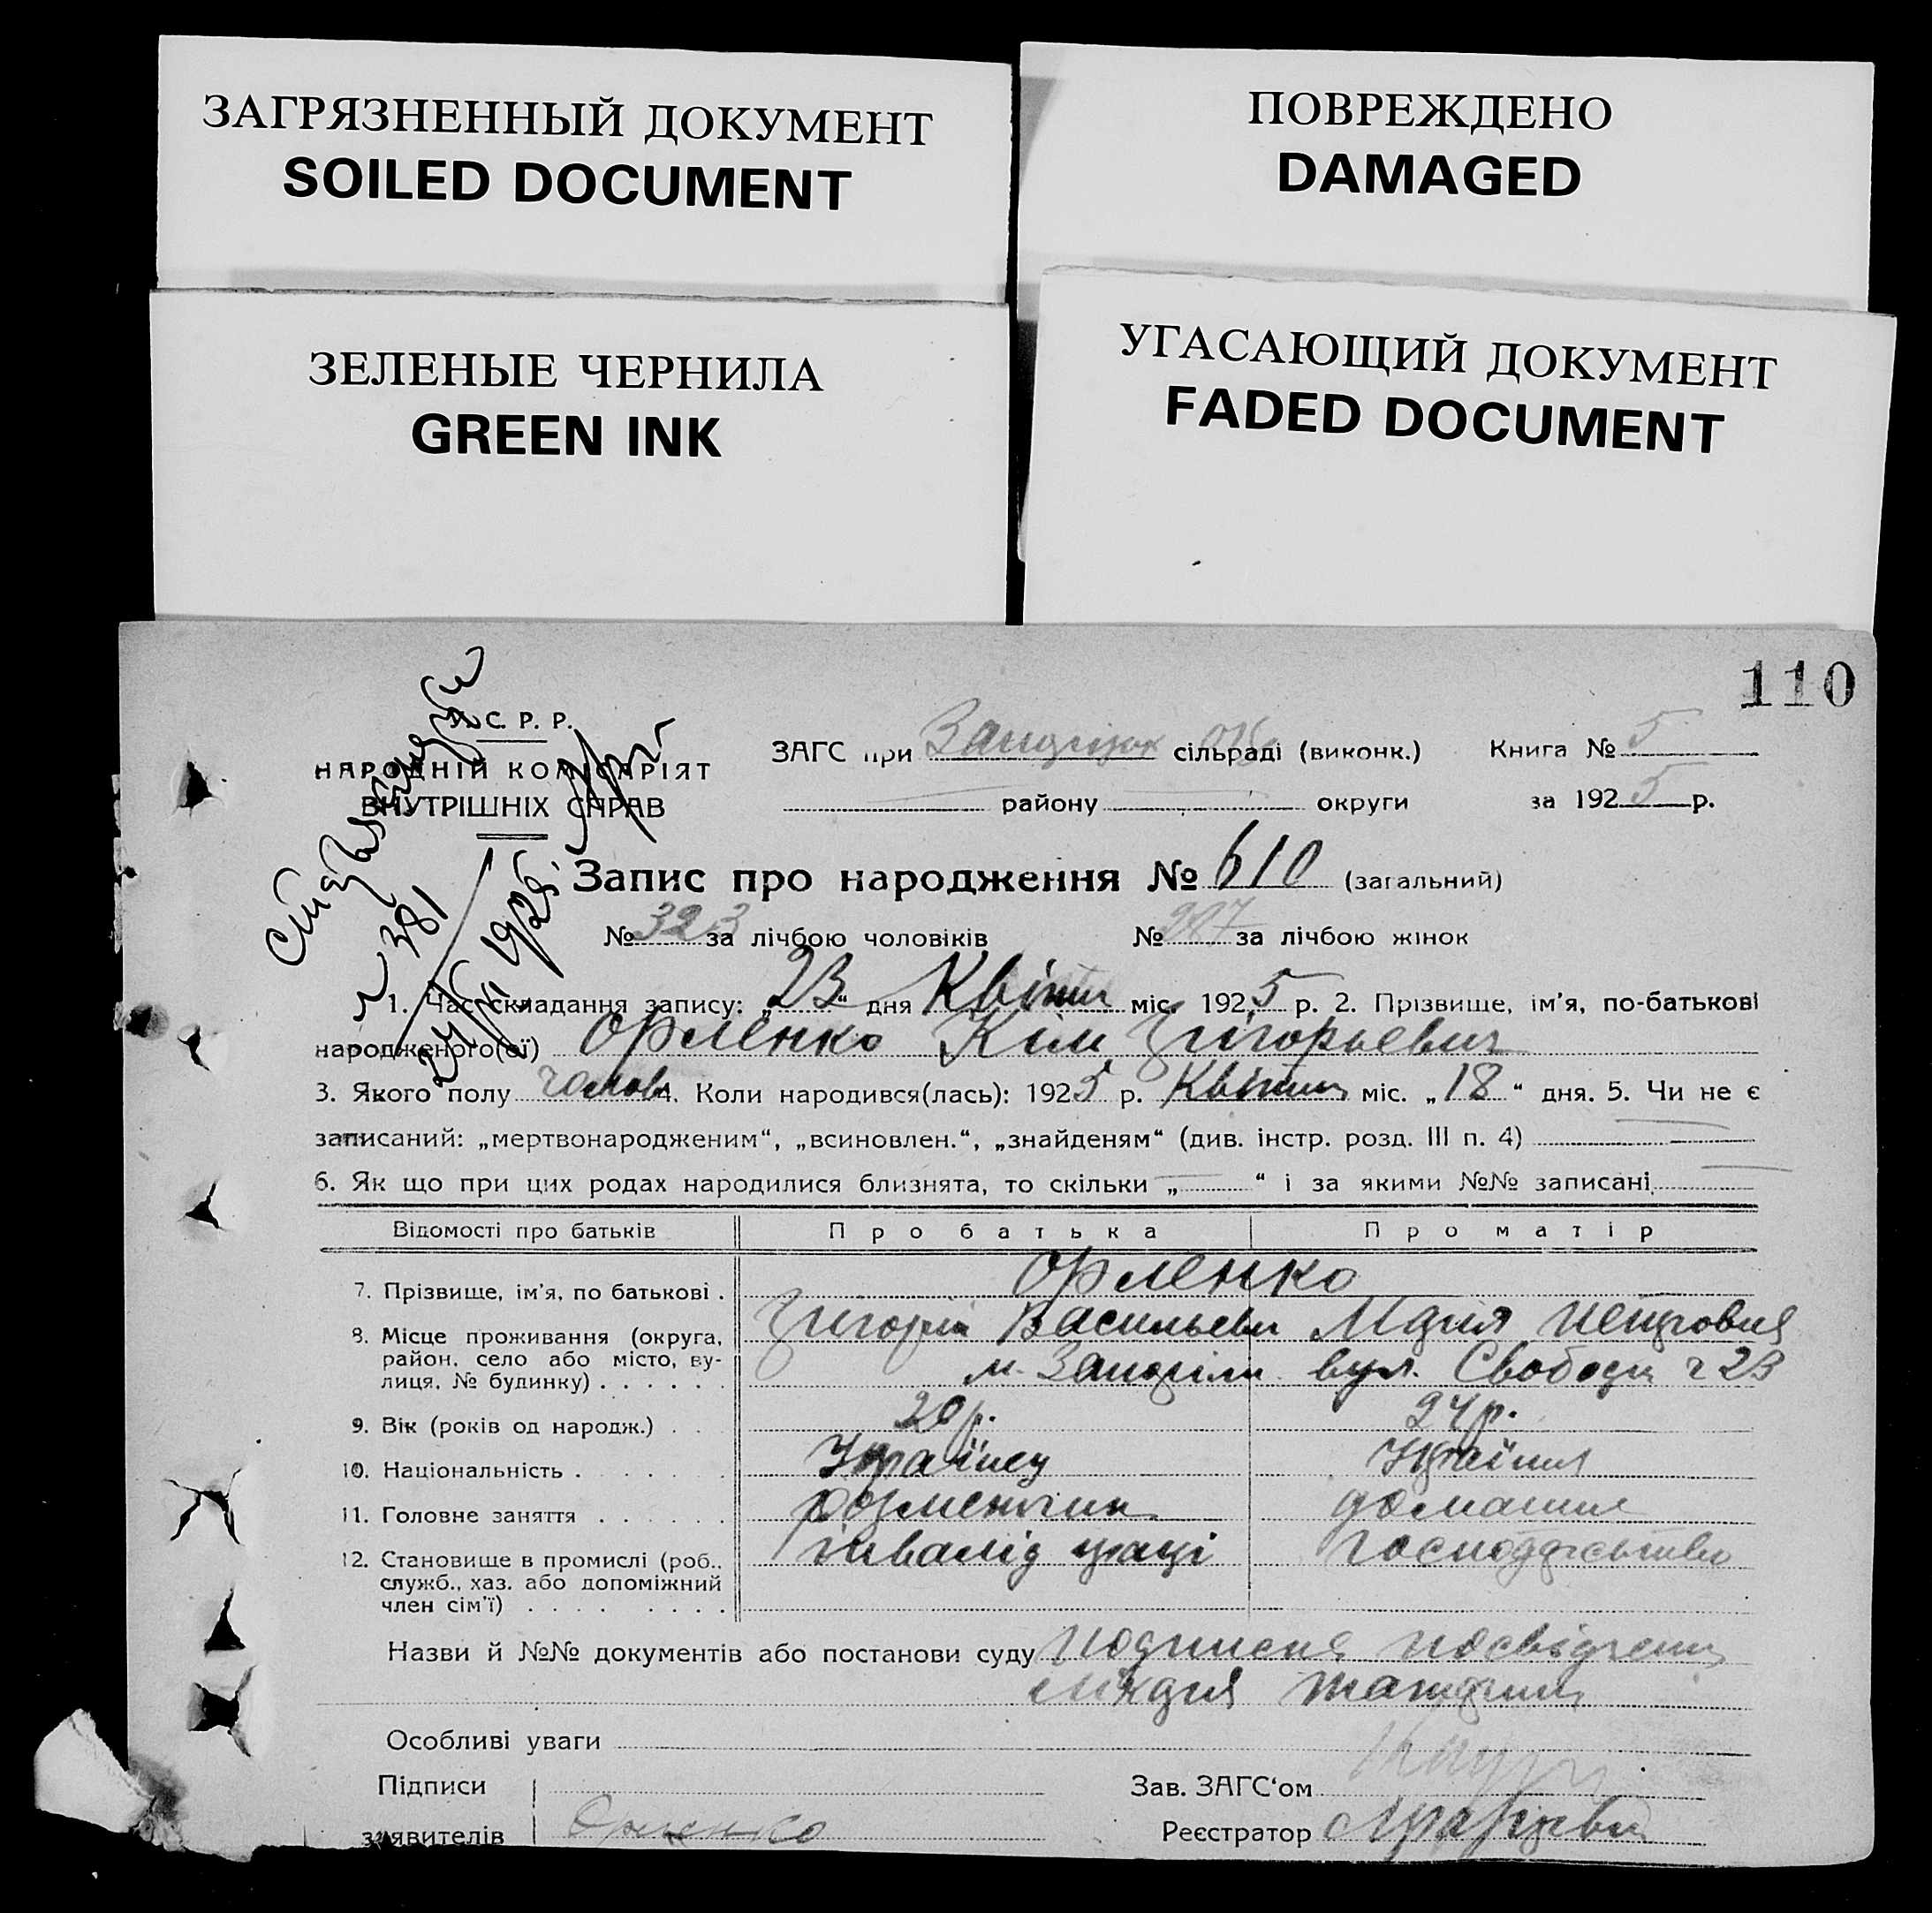 ЗАГРЯЗНЕННЫЙ ДОКУМЕНТ
SOILED DOCUMENT
ПОВРЕЖДЕНО
DAMAGED
ЗЕЛЕНЫЕ ЧЕРНИЛА
GREEN INK
УГАСАЮЩИЙ ДОКУМЕНТ
FADED DOCUMENT
110
У. С. Р. Р.
НАРОДНІЙ КОМІСАРІЯТ
ВНУТРІШНІХ СПРАВ
ЗАГС при сільраді (виконк.) Книга № 5
району округи за 1925 р.
№ 381
Запис про народження № 610 (загальний)
№ 323 за лічбою чоловіків № 287 за лічбою жінок
1. Час складання запису: „23“ дня Квітня міс. 1925 р. 2. Прізвище, ім'я, по-батькові
народженого(ої) Орленко Кім Григорьевич
3. Якого полу чолов. 4. Коли народився(лась): 1925 р. Квітня міс. „18“ дня. 5. Чи не є
записаний: „мертвонародженим“, „всиновлен.“, „знайденям“ (див. інстр. розд. III п. 4)
6. Як що при цих родах народилися близнята, то скільки „ “ і за якими №№ записані
Відомості про батьків Про батька Про матір
7. Прізвище, ім'я, по батькові . Орленко
Григорій Васильевич Марія Петровна
8. Місце проживання (округа, район, село або місто, вулиця, № будинку) . . . . . . м. Запоріжжя вул. Свободи ч 23
9. Вік (років од народж.) . . 20 р. 24 р.
10. Національність . . . . . Українец Українка
11. Головне заняття . . . . . . домашнє
12. Становище в промислі (роб., служб., хаз. або допоміжний член сім'ї) . . . . . . . . інвалід праці господарство
Назви й №№ документів або постанови суду посвідчення
Особливі уваги
Підписи Зав. ЗАГС'ом
заявителів Реєстратор